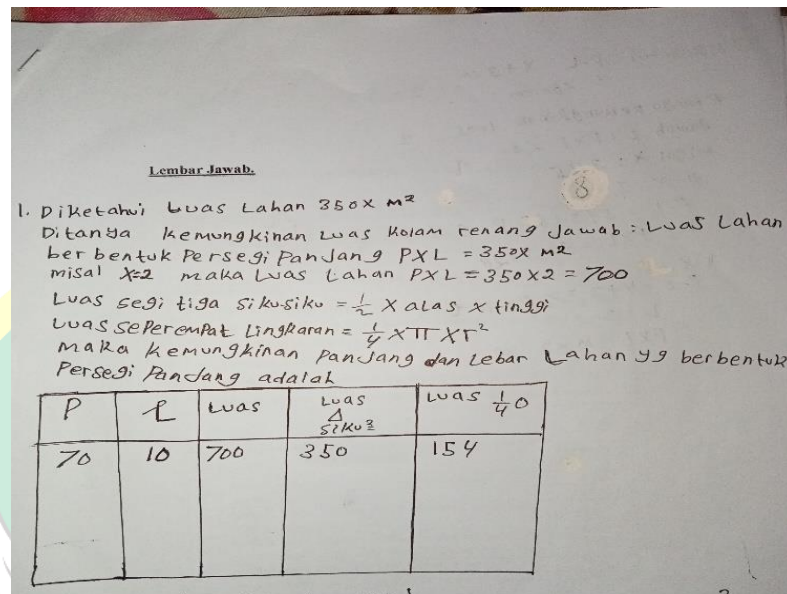 Lembar Jawab.
8
1. Diketahui Luas Lahan 350X M²
Ditanya kemungkinan Luas Kolam renang Jawab : Luas Lahan
berbentuk Persegi Panjang PXL = 350X M²
misal X=2 maka Luas Lahan PXL = 350X2 = 700
Luas segi tiga siku-siku = 1/2 X alas x tinggi
Luas seperempat Lingkaran = 1/4 X π X r²
maka kemungkinan panjang dan Lebar Lahan yg berbentuk
Persegi Panjang adalah
P L Luas Luas Δ siku² Luas 1/4 O
70 10 700 350 154